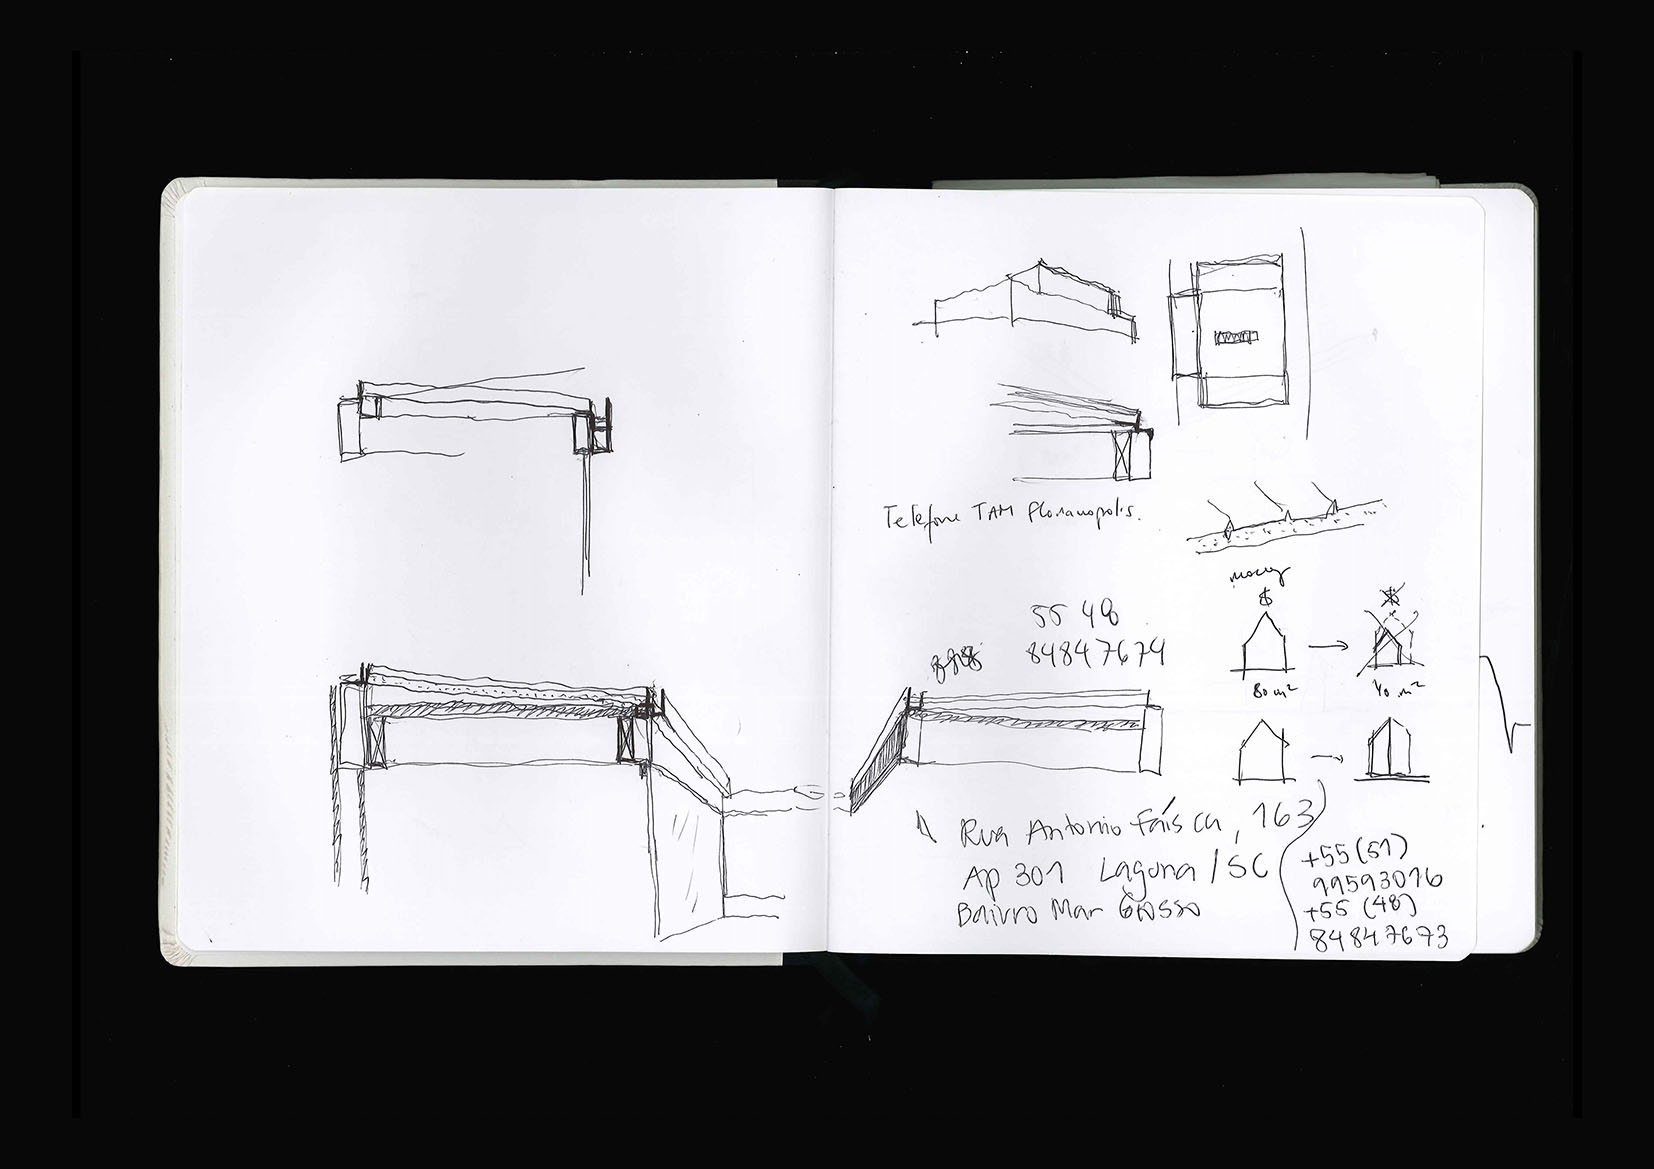 Telefone TAM Florianopolis.
money
$
$
55 48
84847674
80 m²
40 m²
Rua Antonio Faísca, 163
Ap 301 Laguna / SC
Bairro Mar Grosso
+55 (51)
99593016
+55 (48)
84847673